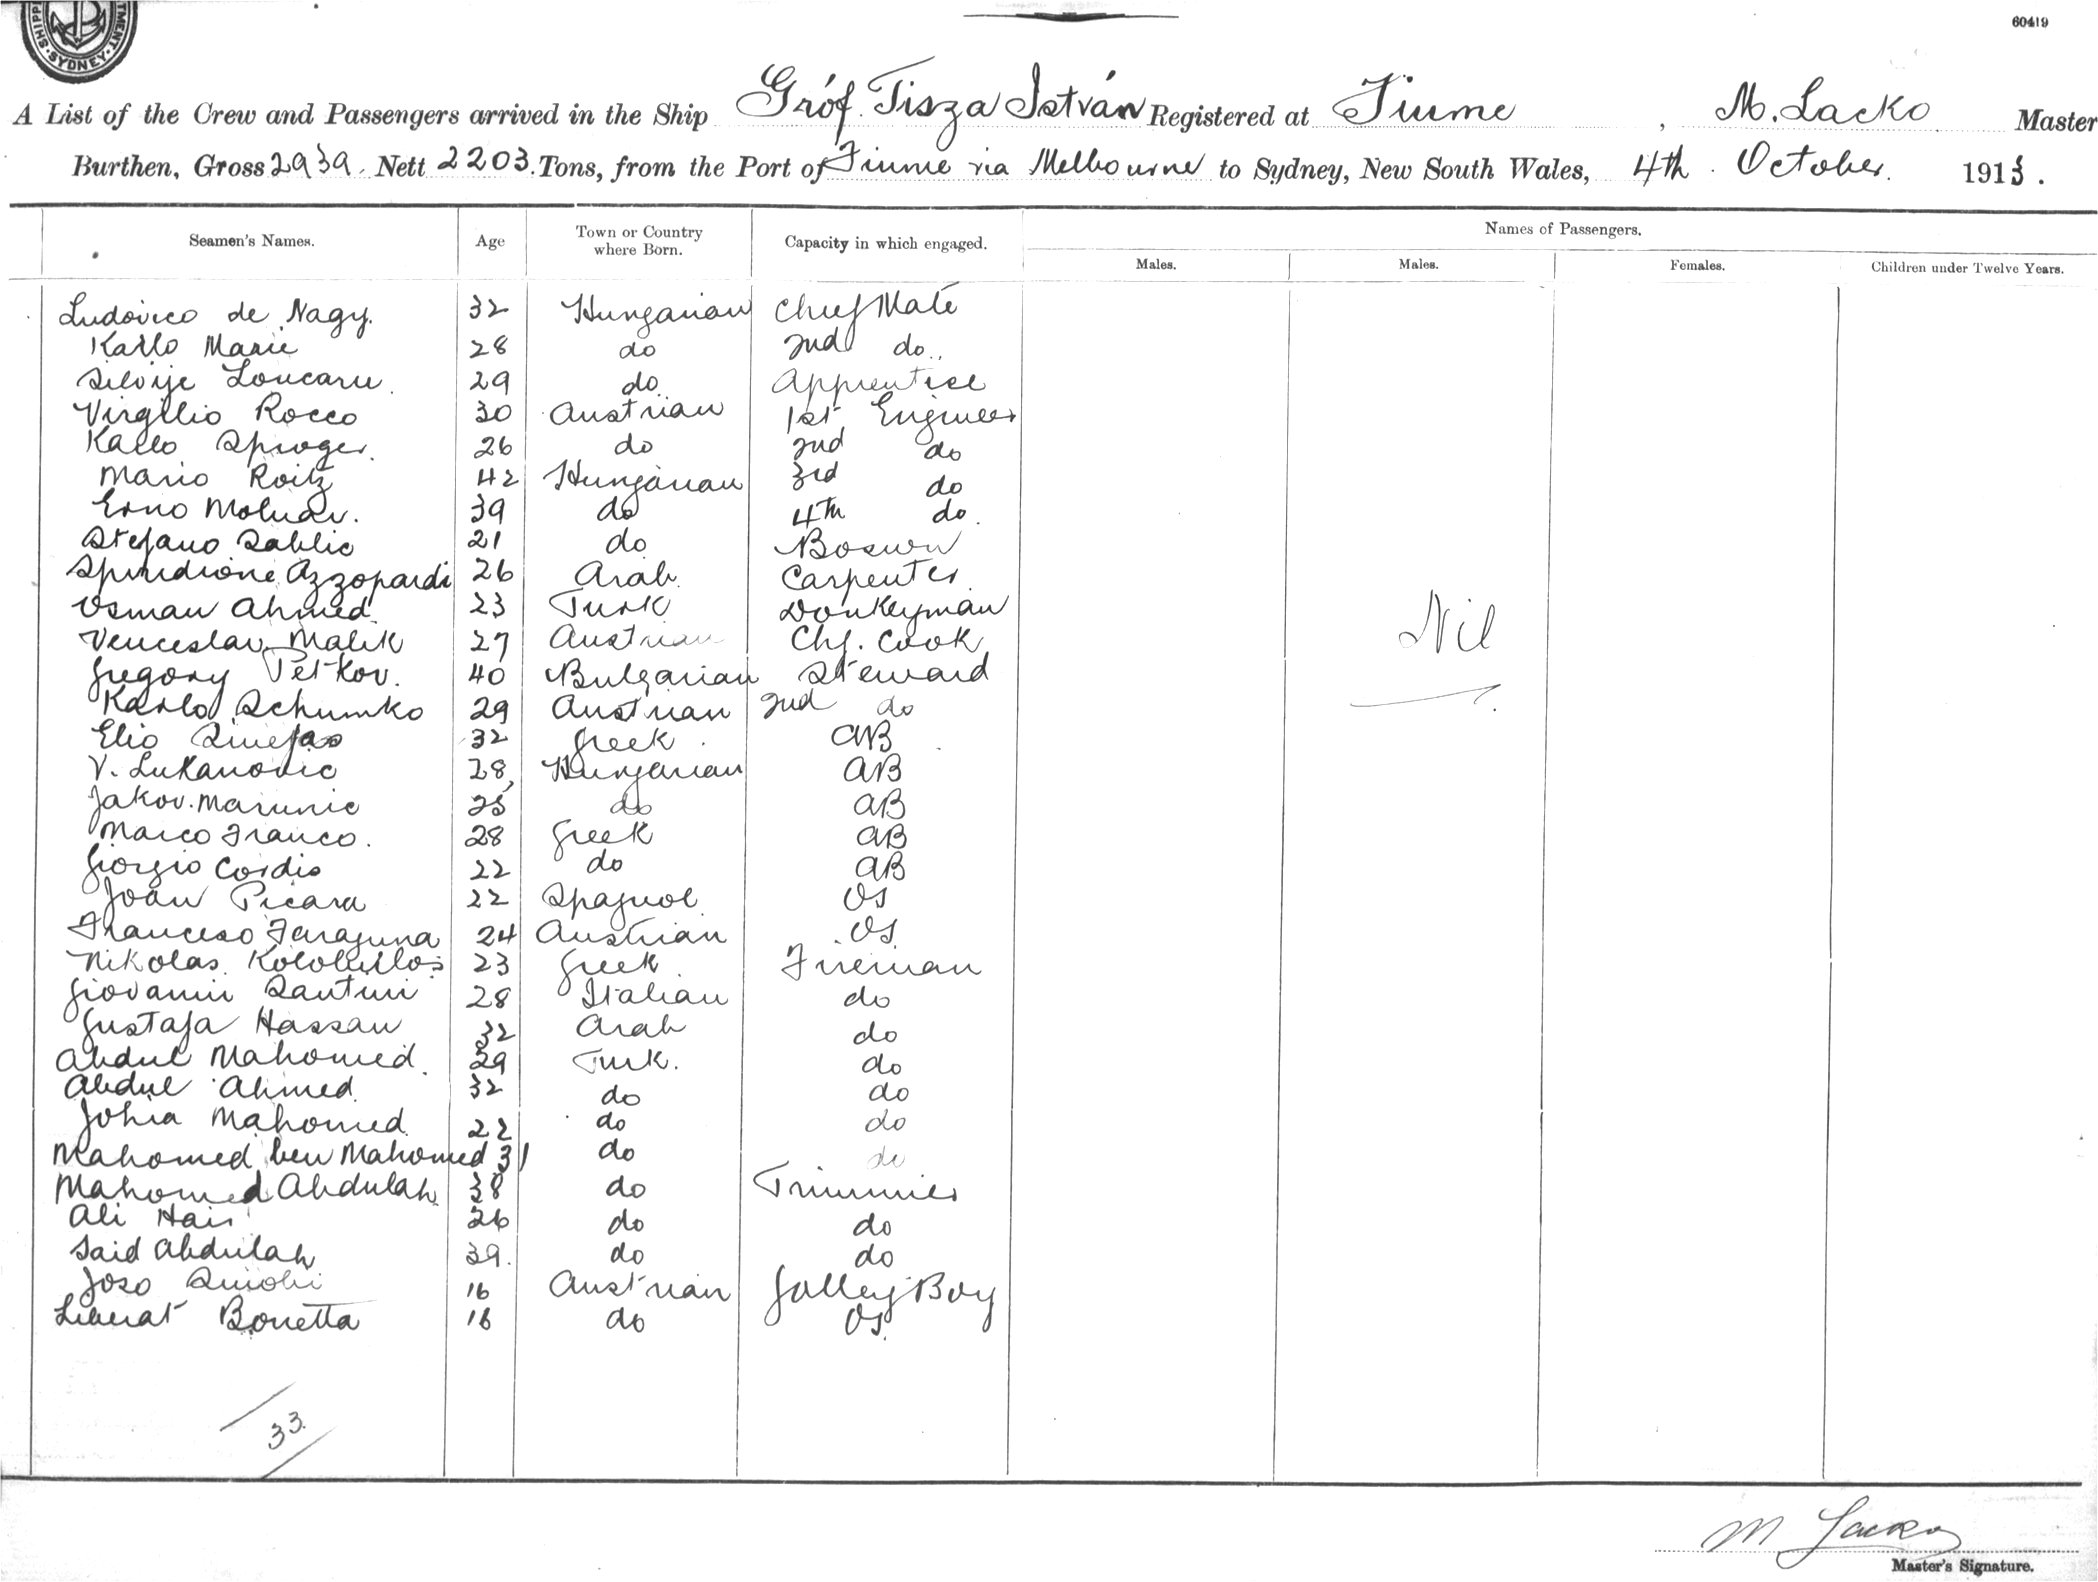 SHIPP
TMENT
SYDNEY
60419
A List of the Crew and Passengers arrived in the Ship Gróf. Tisza István Registered at Fiume, M. Lacko Master
Burthen, Gross 2939. Nett 2203. Tons, from the Port of Fiume via Melbourne to Sydney, New South Wales, 4th. October. 1913.
Seamen's Names. Age Town or Country where Born. Capacity in which engaged. Names of Passengers.
Males. Males. Females. Children under Twelve Years.
Ludovico de Nagy. 32 Hungarian Chief Mate
Karlo Maric 28 do 2nd do.
Silvije 29 do Apprentice
Virgilio Rocco 30 Austrian 1st Engineer
Karlo 26 do 2nd do
Mario Roitz 42 Hungarian 3rd do
Erno Molnar. 39 do 4th do.
Stefano Sablic 21 do Bosun
Spiridione Azzopardi 26 Arab Carpenter
Osman Ahmed 23 Turk Donkeyman
Venceslav Malik 27 Austrian Chf. Cook
Gregory Petkov. 40 Bulgarian Steward
Karlo Schumko 29 Austrian 2nd do
Elio 32 Greek AB
V. Lukanovic 28 Hungarian AB
Jakov. Marunic 25 do AB
Marco Franco. 28 Greek AB
Giorgio Cordis 22 do AB
Joan Picara 22 Spagnol OS
Francesco Faraguna 24 Austrian OS
Nikolas 23 Greek Fireman
Giovanni Santini 28 Italian do
Gustafa Hassan 32 Arab do
Abdul Mahomed. 29 Turk. do
Abdul Ahmed 32 do do
Johia Mahomed 22 do do
Mahomed ben Mahomed 31 do do
Mahomed Abdulah 38 do Trimmer
Ali 26 do do
Said Abdulah 39. do do
Joso 16 Austrian Galley Boy
Liberat Bonetta 16 do OS.
Nil
33.
M Lacko
Master's Signature.